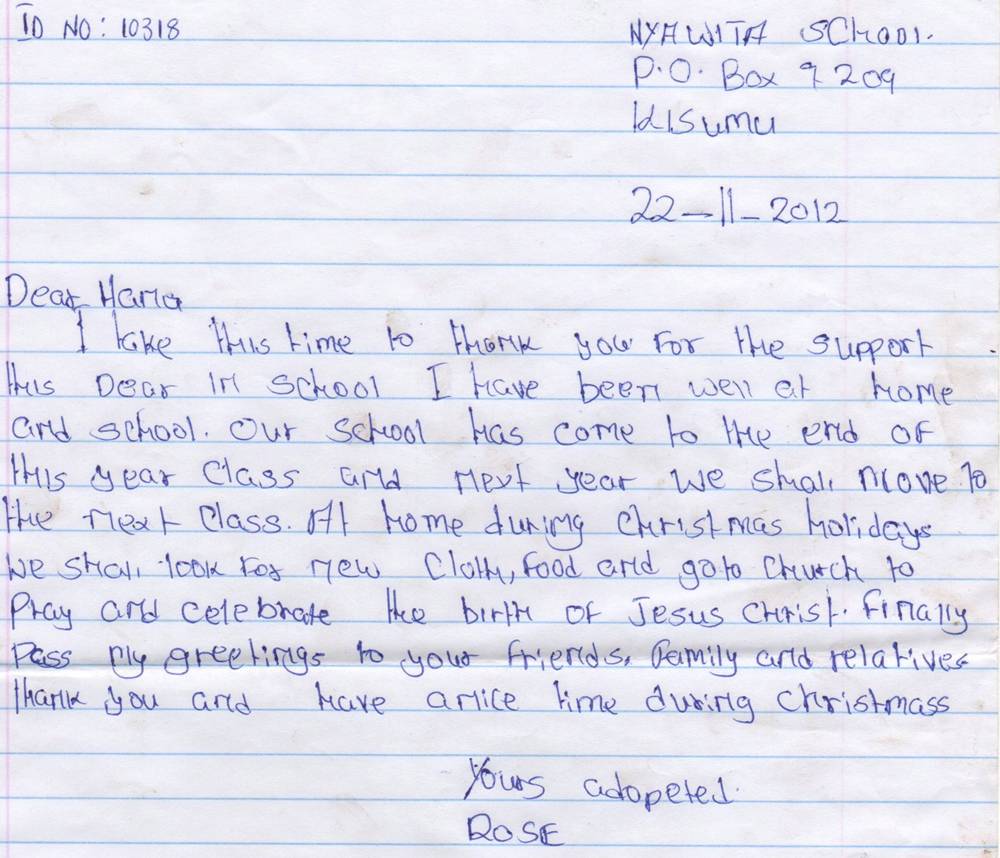 ID NO: 10318
NYAWITA SCHOOL.
P.O. Box 9209
KISUMU
22-11-2012
Dear Hana
I take this time to thank you for the support
this Dear in school I have been well at home
and school. Our school has come to the end of
this year Class and next year we shall move to
the next Class. At home during Christmas holidays
we shall look for new Cloth, food and go to Church to
Pray and celebrate the birth of Jesus Christ. Finally
Pass My greetings to your friends, family and relatives
thank you and have a nice time during Christmass
Yours adopeted.
ROSE